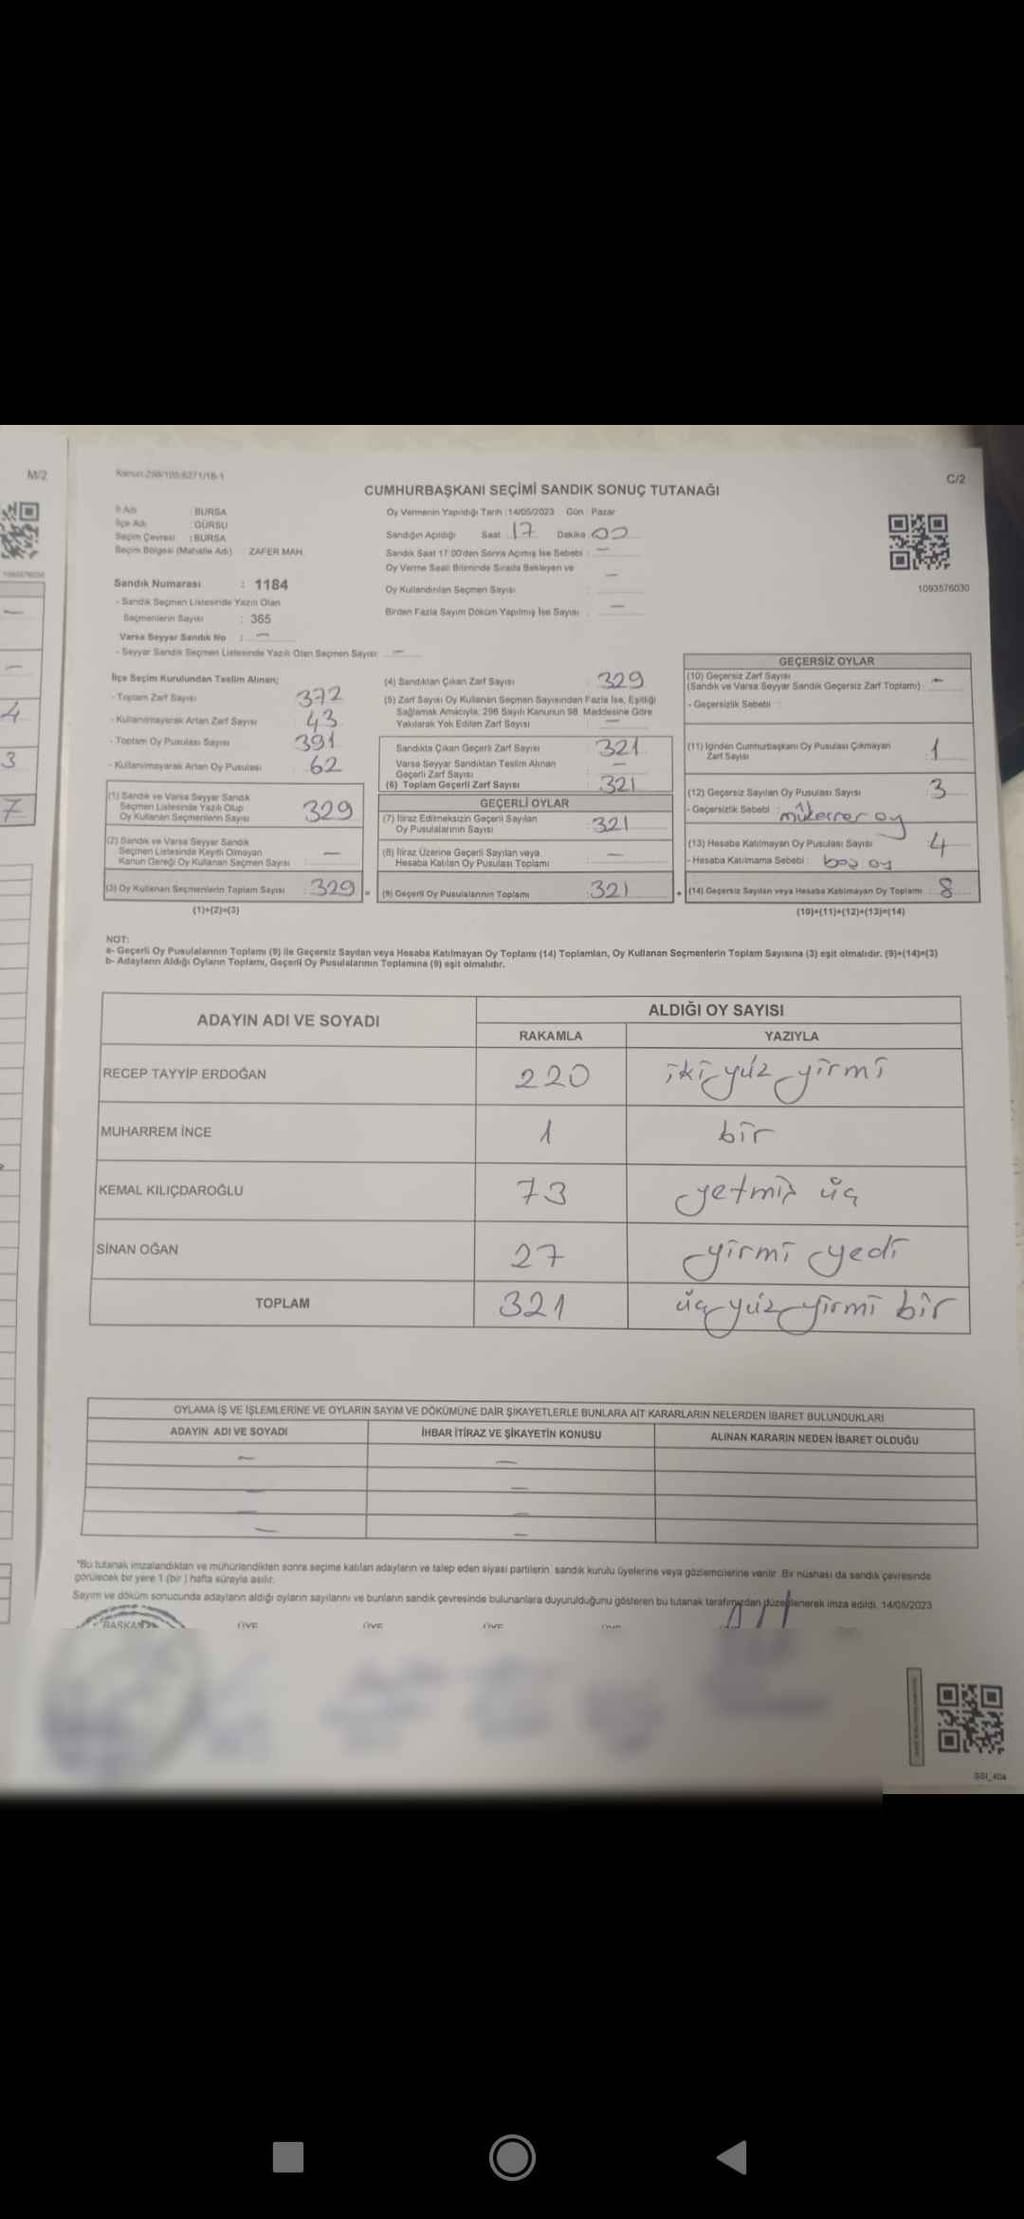 M/2
Kanun:298/105;6271/18-1
C/2
CUMHURBAŞKANI SEÇİMİ SANDIK SONUÇ TUTANAĞI
İl Adı : BURSA
İlçe Adı : GÜRSU
Seçim Çevresi : BURSA
Seçim Bölgesi (Mahalle Adı) ZAFER MAH.
Oy Vermenin Yapıldığı Tarih :14/05/2023 Gün : Pazar
Sandığın Açıldığı Saat : 17 Dakika : 00
Sandık Saat 17:00'den Sonra Açılmış İse Sebebi : —
Oy Verme Saati Bitiminde Sırada Bekleyen ve
Oy Kullandırılan Seçmen Sayısı : —
Birden Fazla Sayım Döküm Yapılmış İse Sayısı : —
1093576030
Sandık Numarası : 1184
- Sandık Seçmen Listesinde Yazılı Olan
Seçmenlerin Sayısı : 365
Varsa Seyyar Sandık No : —
- Seyyar Sandık Seçmen Listesinde Yazılı Olan Seçmen Sayısı : —
İlçe Seçim Kurulundan Teslim Alınan;
- Toplam Zarf Sayısı : 372
- Kullanılmayarak Artan Zarf Sayısı : 43
- Toplam Oy Pusulası Sayısı : 391
- Kullanılmayarak Artan Oy Pusulası : 62
(1) Sandık ve Varsa Seyyar Sandık
Seçmen Listesinde Yazılı Olup
Oy Kullanan Seçmenlerin Sayısı : 329
(2) Sandık ve Varsa Seyyar Sandık
Seçmen Listesinde Kayıtlı Olmayan
Kanun Gereği Oy Kullanan Seçmen Sayısı : —
(3) Oy Kullanan Seçmenlerin Toplam Sayısı : 329 =
(1)+(2)=(3)
(4) Sandıktan Çıkan Zarf Sayısı : 329
(5) Zarf Sayısı Oy Kullanan Seçmen Sayısından Fazla İse, Eşitliği
Sağlamak Amacıyla, 298 Sayılı Kanunun 98. Maddesine Göre
Yakılarak Yok Edilen Zarf Sayısı : —
Sandıkta Çıkan Geçerli Zarf Sayısı : 321
Varsa Seyyar Sandıktan Teslim Alınan
Geçerli Zarf Sayısı : —
(6) Toplam Geçerli Zarf Sayısı : 321
GEÇERLİ OYLAR
(7) İtiraz Edilmeksizin Geçerli Sayılan
Oy Pusulalarının Sayısı : 321
(8) İtiraz Üzerine Geçerli Sayılan veya
Hesaba Katılan Oy Pusulası Toplamı : —
(9) Geçerli Oy Pusulalarının Toplamı : 321 +
GEÇERSİZ OYLAR
(10) Geçersiz Zarf Sayısı
(Sandık ve Varsa Seyyar Sandık Geçersiz Zarf Toplamı) : —
- Geçersizlik Sebebi :
(11) İçinden Cumhurbaşkanı Oy Pusulası Çıkmayan
Zarf Sayısı : 1
(12) Geçersiz Sayılan Oy Pusulası Sayısı : 3
- Geçersizlik Sebebi : mükerrer oy
(13) Hesaba Katılmayan Oy Pusulası Sayısı : 4
- Hesaba Katılmama Sebebi : boş oy
(14) Geçersiz Sayılan veya Hesaba Katılmayan Oy Toplamı : 8
(10)+(11)+(12)+(13)=(14)
NOT:
a- Geçerli Oy Pusulalarının Toplamı (9) ile Geçersiz Sayılan veya Hesaba Katılmayan Oy Toplamı (14) Toplamları, Oy Kullanan Seçmenlerin Toplam Sayısına (3) eşit olmalıdır. (9)+(14)=(3)
b- Adayların Aldığı Oyların Toplamı, Geçerli Oy Pusulalarının Toplamına (9) eşit olmalıdır.
ADAYIN ADI VE SOYADI
ALDIĞI OY SAYISI
RAKAMLA YAZIYLA
RECEP TAYYİP ERDOĞAN 220 iki yüz yirmi
MUHARREM İNCE 1 bir
KEMAL KILIÇDAROĞLU 73 yetmiş üç
SİNAN OĞAN 27 yirmi yedi
TOPLAM 321 üç yüz yirmi bir
OYLAMA İŞ VE İŞLEMLERİNE VE OYLARIN SAYIM VE DÖKÜMÜNE DAİR ŞİKAYETLERLE BUNLARA AİT KARARLARIN NELERDEN İBARET BULUNDUKLARI
ADAYIN ADI VE SOYADI İHBAR İTİRAZ VE ŞİKAYETİN KONUSU ALINAN KARARIN NEDEN İBARET OLDUĞU
*Bu tutanak imzalandıktan ve mühürlendikten sonra seçime katılan adayların ve talep eden siyasi partilerin sandık kurulu üyelerine veya gözlemcilerine verilir. Bir nüshası da sandık çevresinde
görülecek bir yere 1 (bir) hafta süreyle asılır.
Sayım ve döküm sonucunda adayların aldığı oyların sayılarını ve bunların sandık çevresinde bulunanlara duyurulduğunu gösteren bu tutanak tarafımızdan düzenlenerek imza edildi. 14/05/2023
BAŞKAN ÜYE ÜYE ÜYE
4
3
7